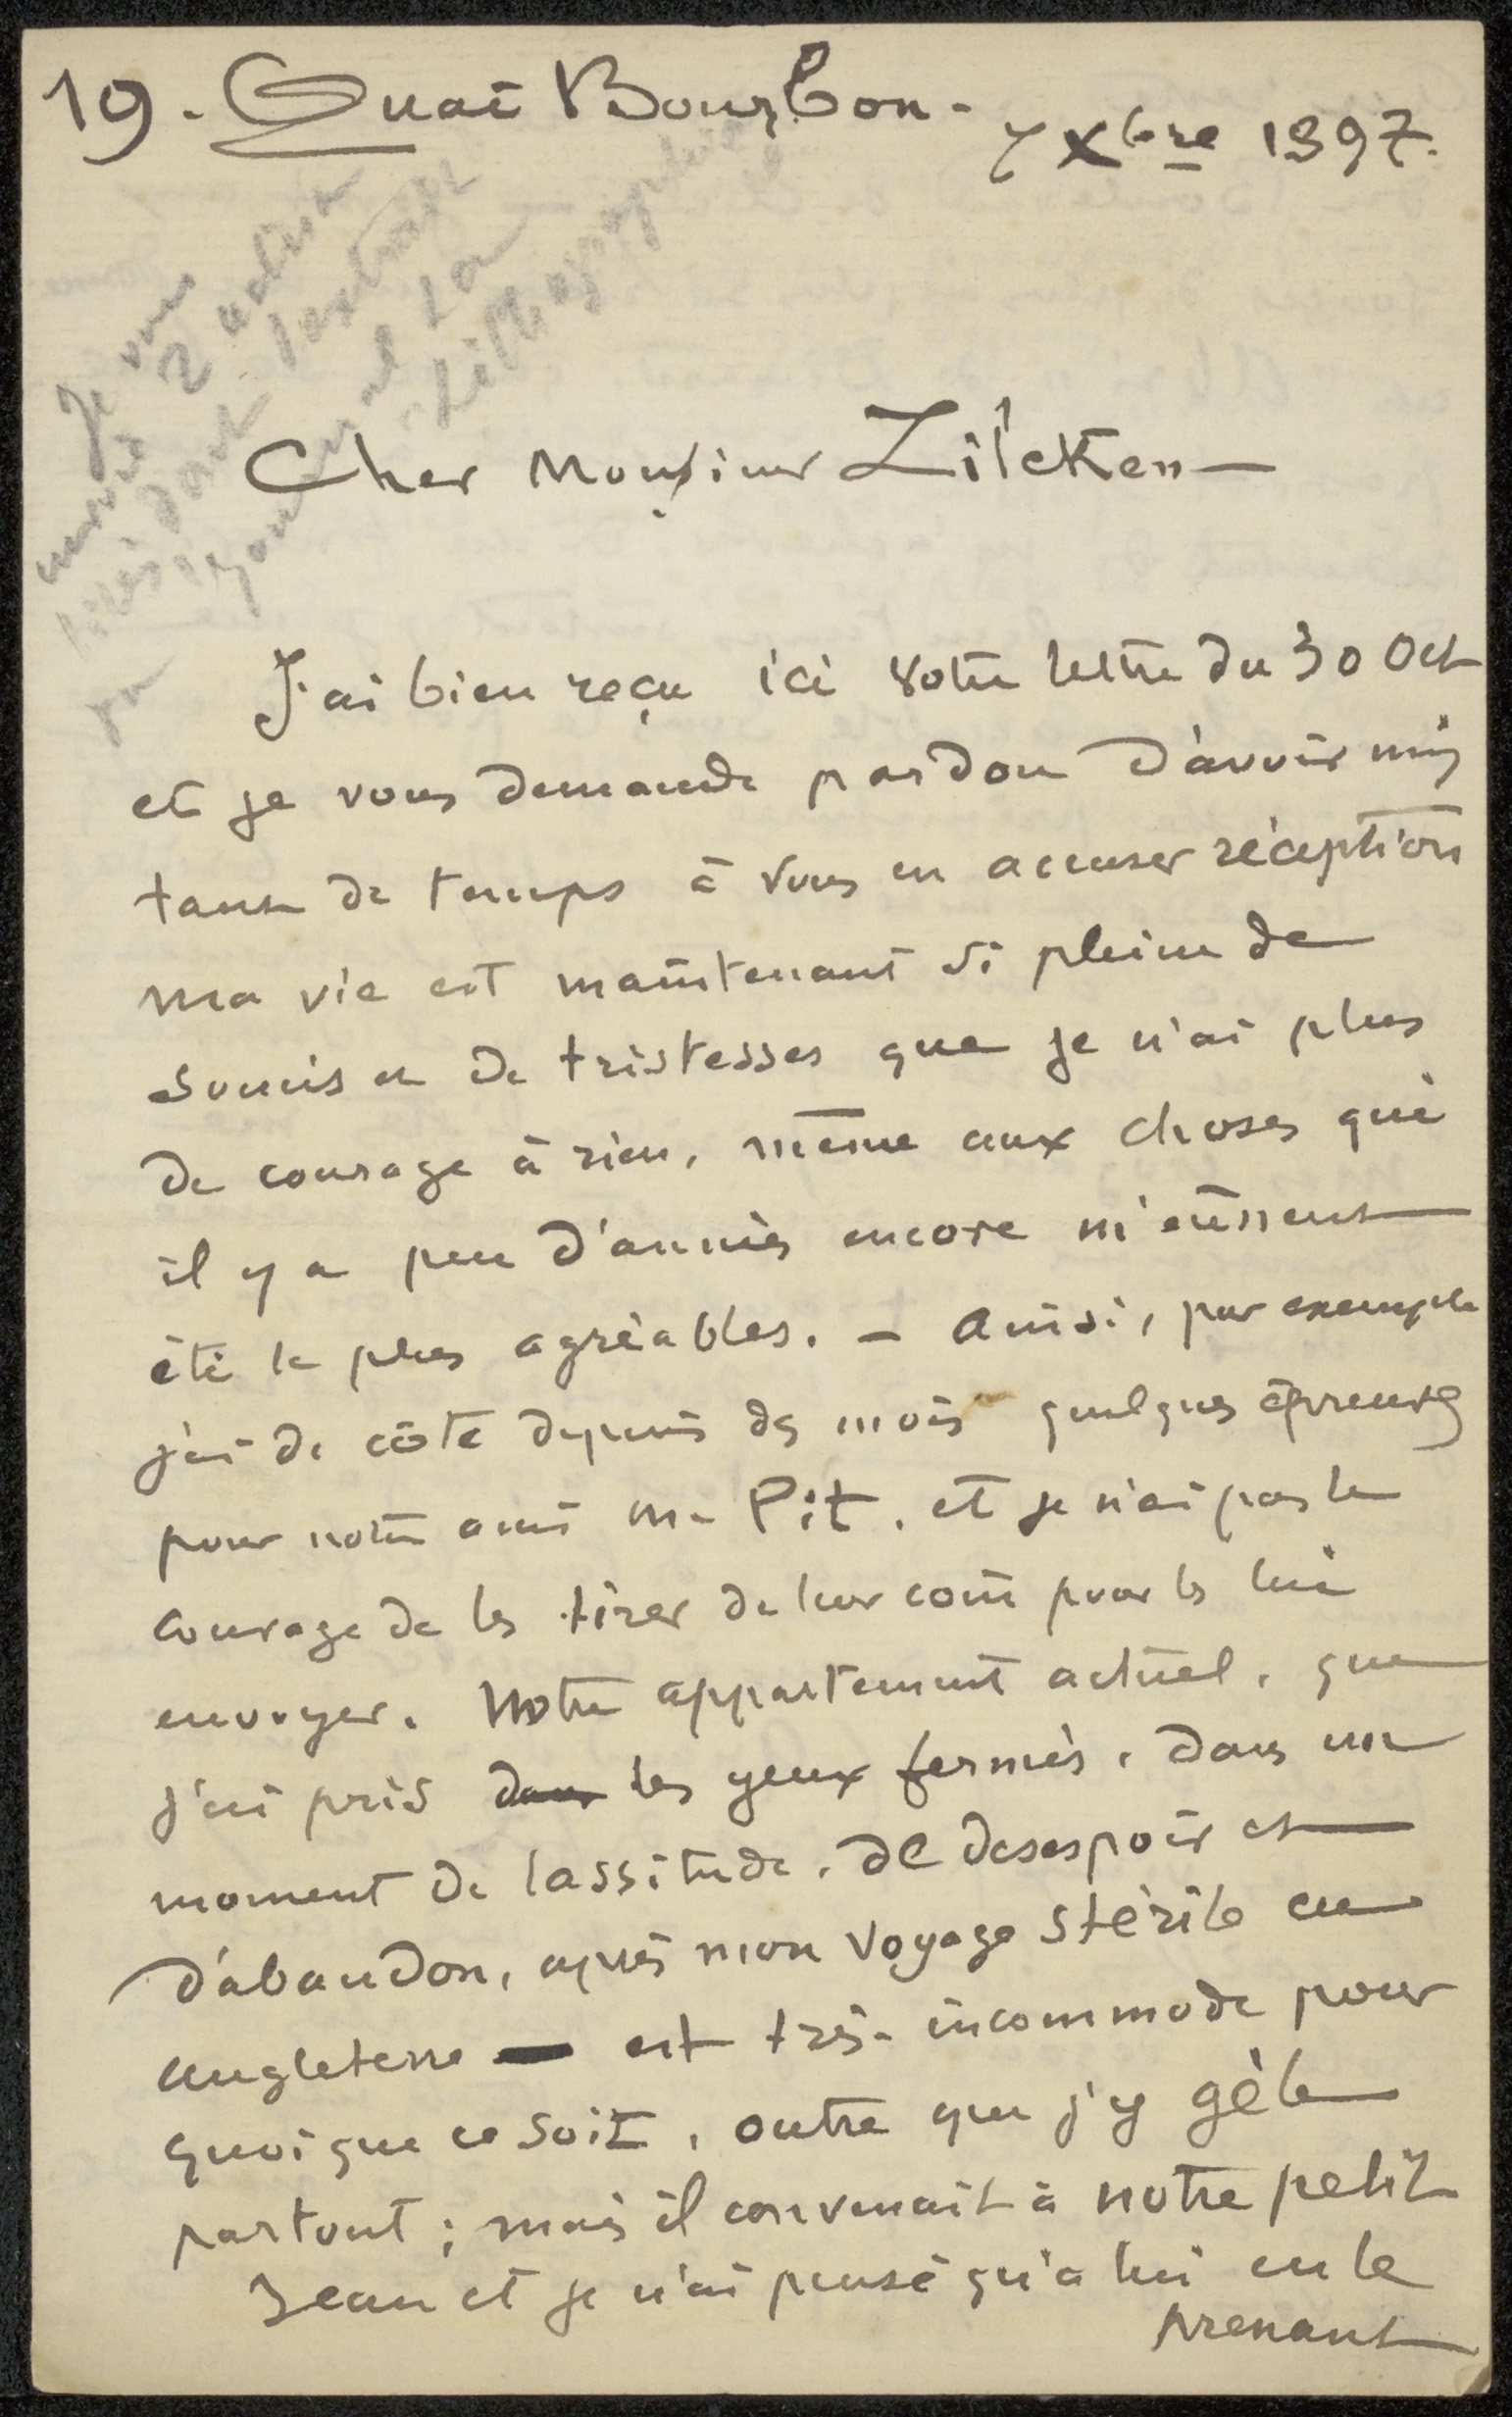 19. Quai Bourbon -
7 Xbre 1897.
Je vous
2 autres
dont
Lithographie
Cher Monsieur Zilcken —
J'ai bien reçu ici votre lettre du 30 Oct
et je vous demande pardon d'avoir mis
tant de temps à vous en accuser réception
ma vie est maintenant si pleine de
soucis et de tristesses que je n'ai plus
de courage à rien, même aux choses qui
il y a peu d'années encore m'eussent
été le plus agréables. - Ainsi, par exemple
j'ai de côté depuis des mois quelques épreuves
pour notre ami Mr Pit, et je n'ai pas le
courage de les tirer de leur coin pour les lui
envoyer. Notre appartement actuel, que
j'ai pris dans les yeux fermés, dans un
moment de lassitude, de desespoir et
d'abandon, après mon voyage stérile en
Angleterre — est très-incommode pour
quoi que ce soit, outre que j'y gèle
partout ; mais il convenait à notre petit
Jean et je n'ai pensé qu'à lui en le
prenant